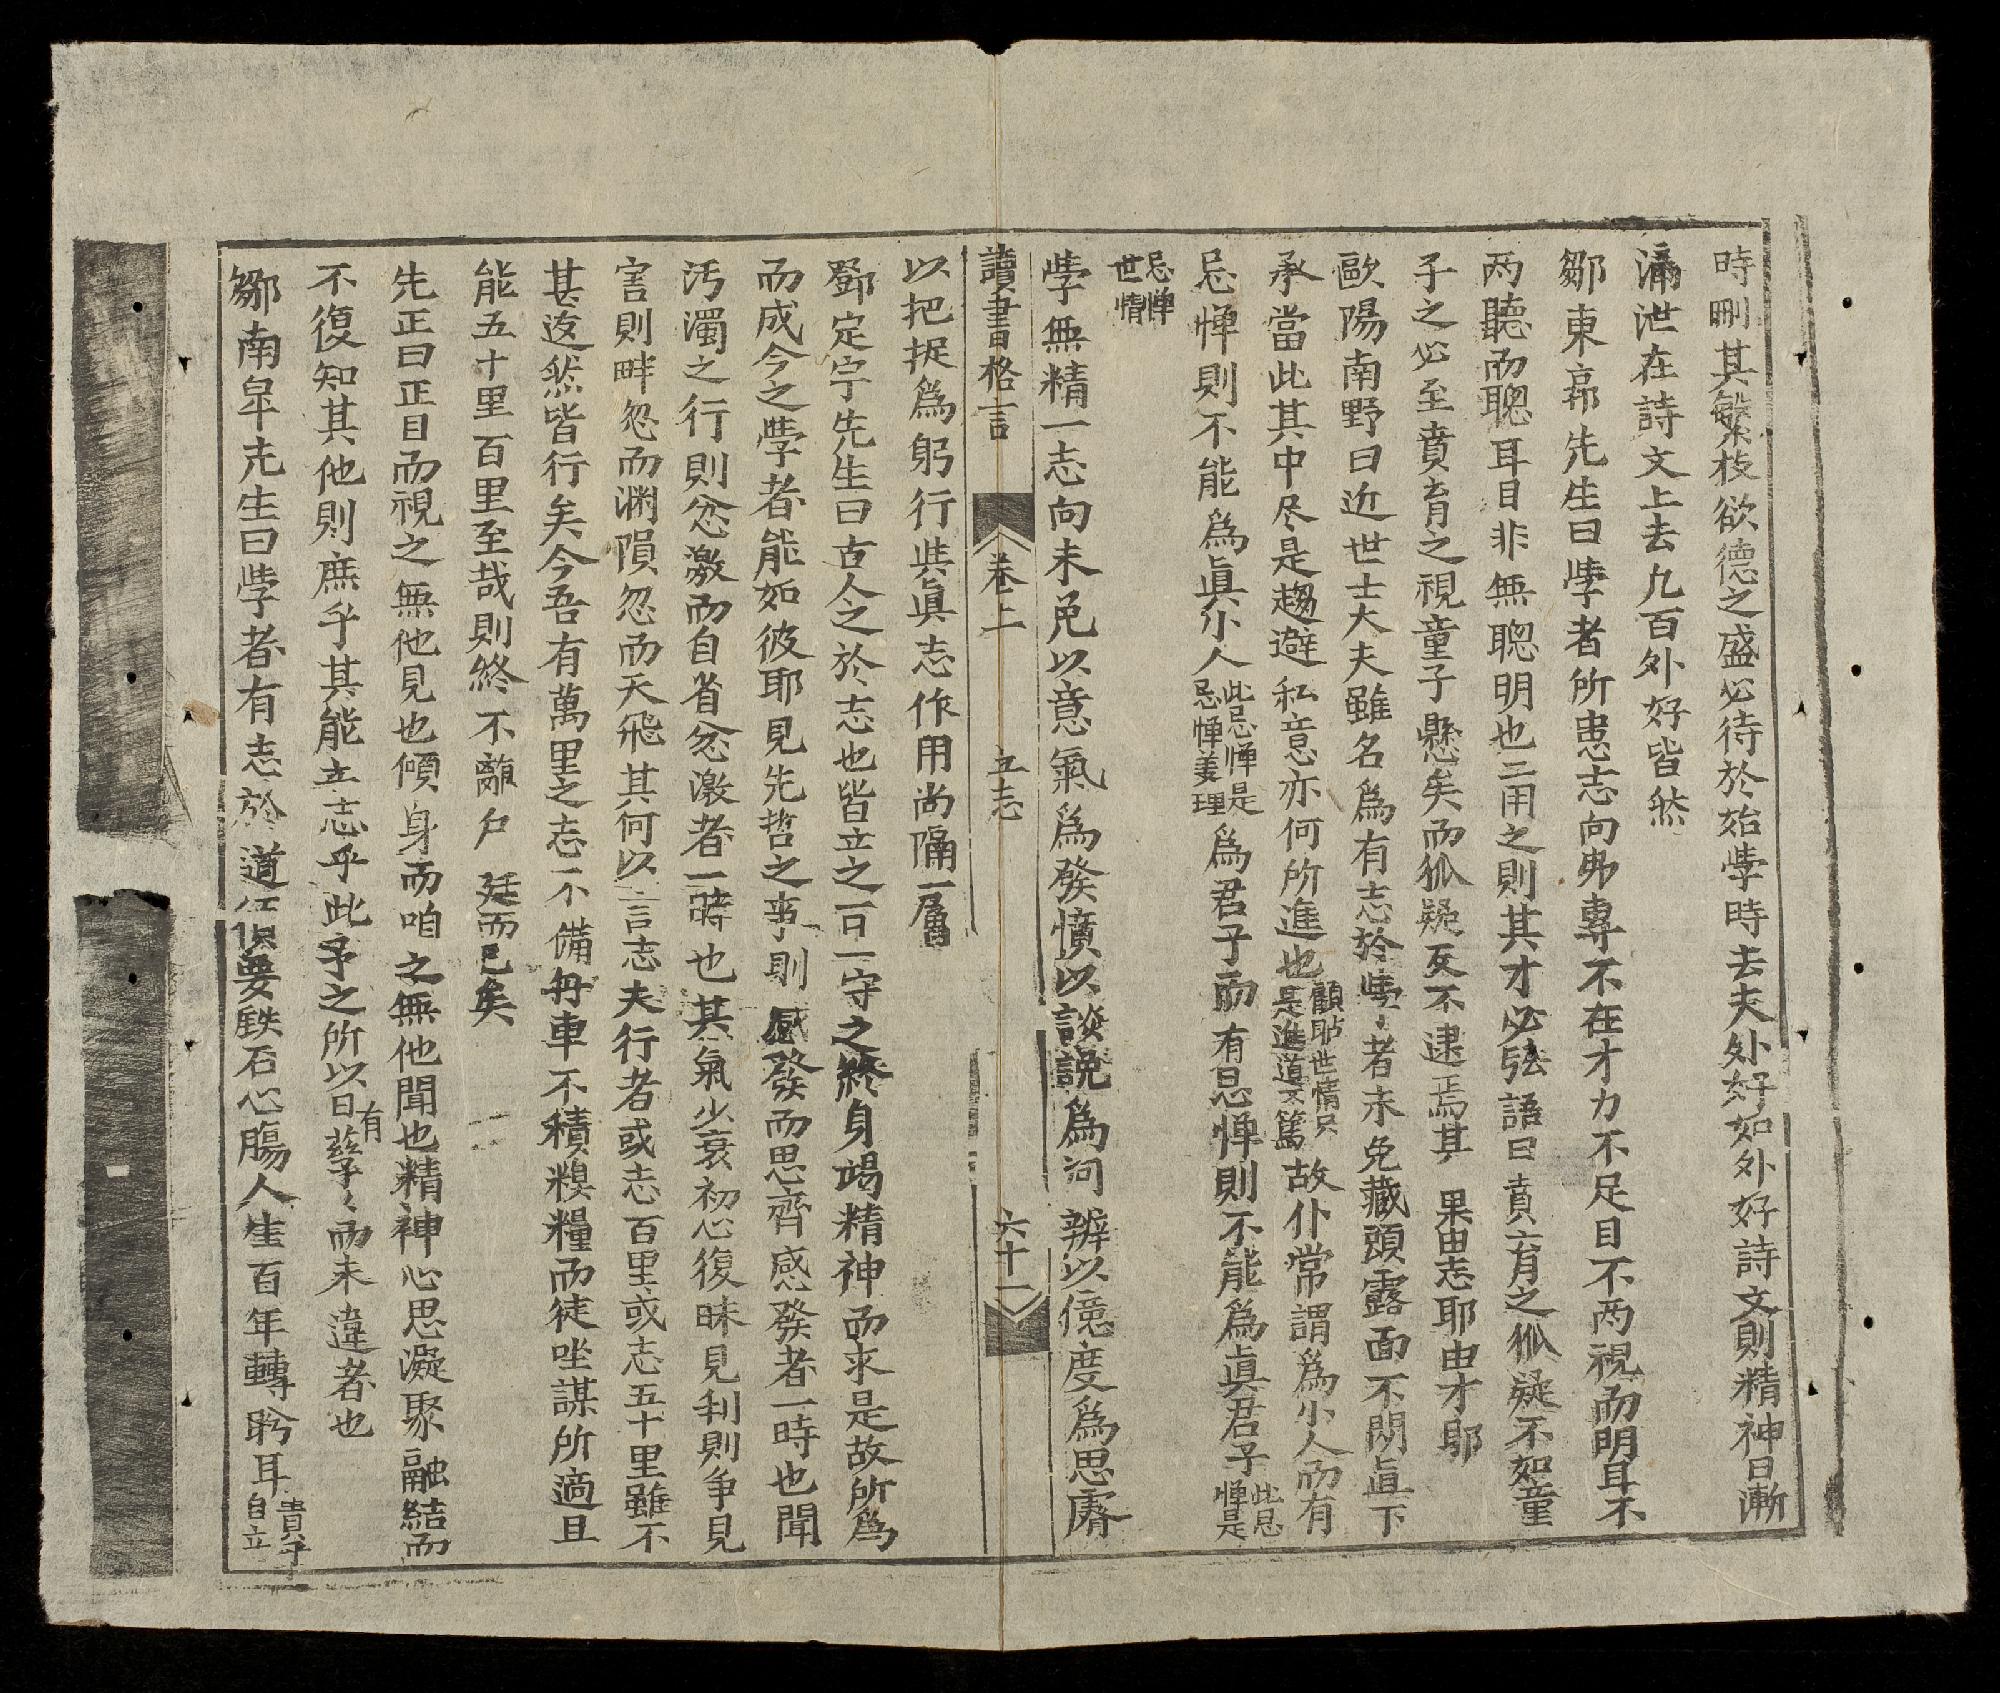 時刪其繁枝欲德之盛必待於始斈時去夫外好如外好詩文則精神日漸
漏泄在詩文上去凡百外好皆然
鄒東亭先生曰斈者所患志向弗專不在才力不足目不两視而明耳不
两聽而聰耳目非無聰明也二用之則其才必弦語曰賁育之狐疑不如童
子之必至賁育之視童子懸矣而狐疑反不逮焉其果由志耶由才耶
歐陽南野曰近世士大夫雖名爲有志於斈者未免藏頭露面不閒眞下
承當此其中尽是趨避私意亦何所進也顧眇世情只是進道不篤故仆常謂爲小人而有
忌憚則不能爲眞小人此忌憚是忌憚義理爲君子而有忌憚則不能爲眞君子此忌憚是
忌憚世情
斈無精一志向未免以意氣爲發憤以談說爲問辨以億度爲思慮
讀書格言 卷上 立志 六十一
以把捉爲躬行與眞志作用尚隔一層
鄧定宇先生曰古人之於志也皆立之一日守之終身竭精神而求是故所爲
而成今之斈者能如彼耶見先哲之事則感發而思齊感發者一時也聞
汚濁之行則忿激而自省忿激者一時也其氣少衰初心復昧見利則争見
害則畔忽而渊隕忽而天飛其何以言志夫行者或志百里或志五十里雖不
能五十里百里至哉則終不離户廷而已矣
甚返然皆行矣今吾有萬里之志不備舟車不積糗糧而徒坐謀所適且
先正曰正目而視之無他見也傾身而咱之無他聞也精神心思凝聚融結而
不復知其他則庶乎其能立志乎此予之所以日有孳〻而未違者也
鄒南皐先生曰斈者有志於道須要鉄石心膓人生百年轉盻耳貴乎自立